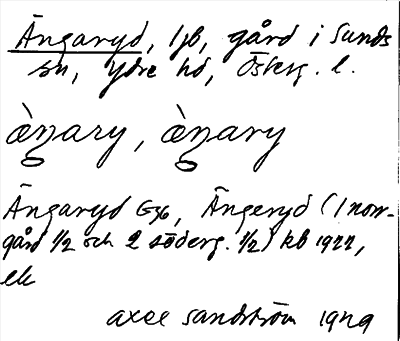 Ängaryd, 1jb, gård i Sunds
sn, Ydre hd, Österg. l.
àŋary, àŋary
Ängaryd Gxb, Ängeryd (1 norr-
gård 1/2 och 2 söderg. 1/2) kb 1922,
ek
Axel Sandström 1929